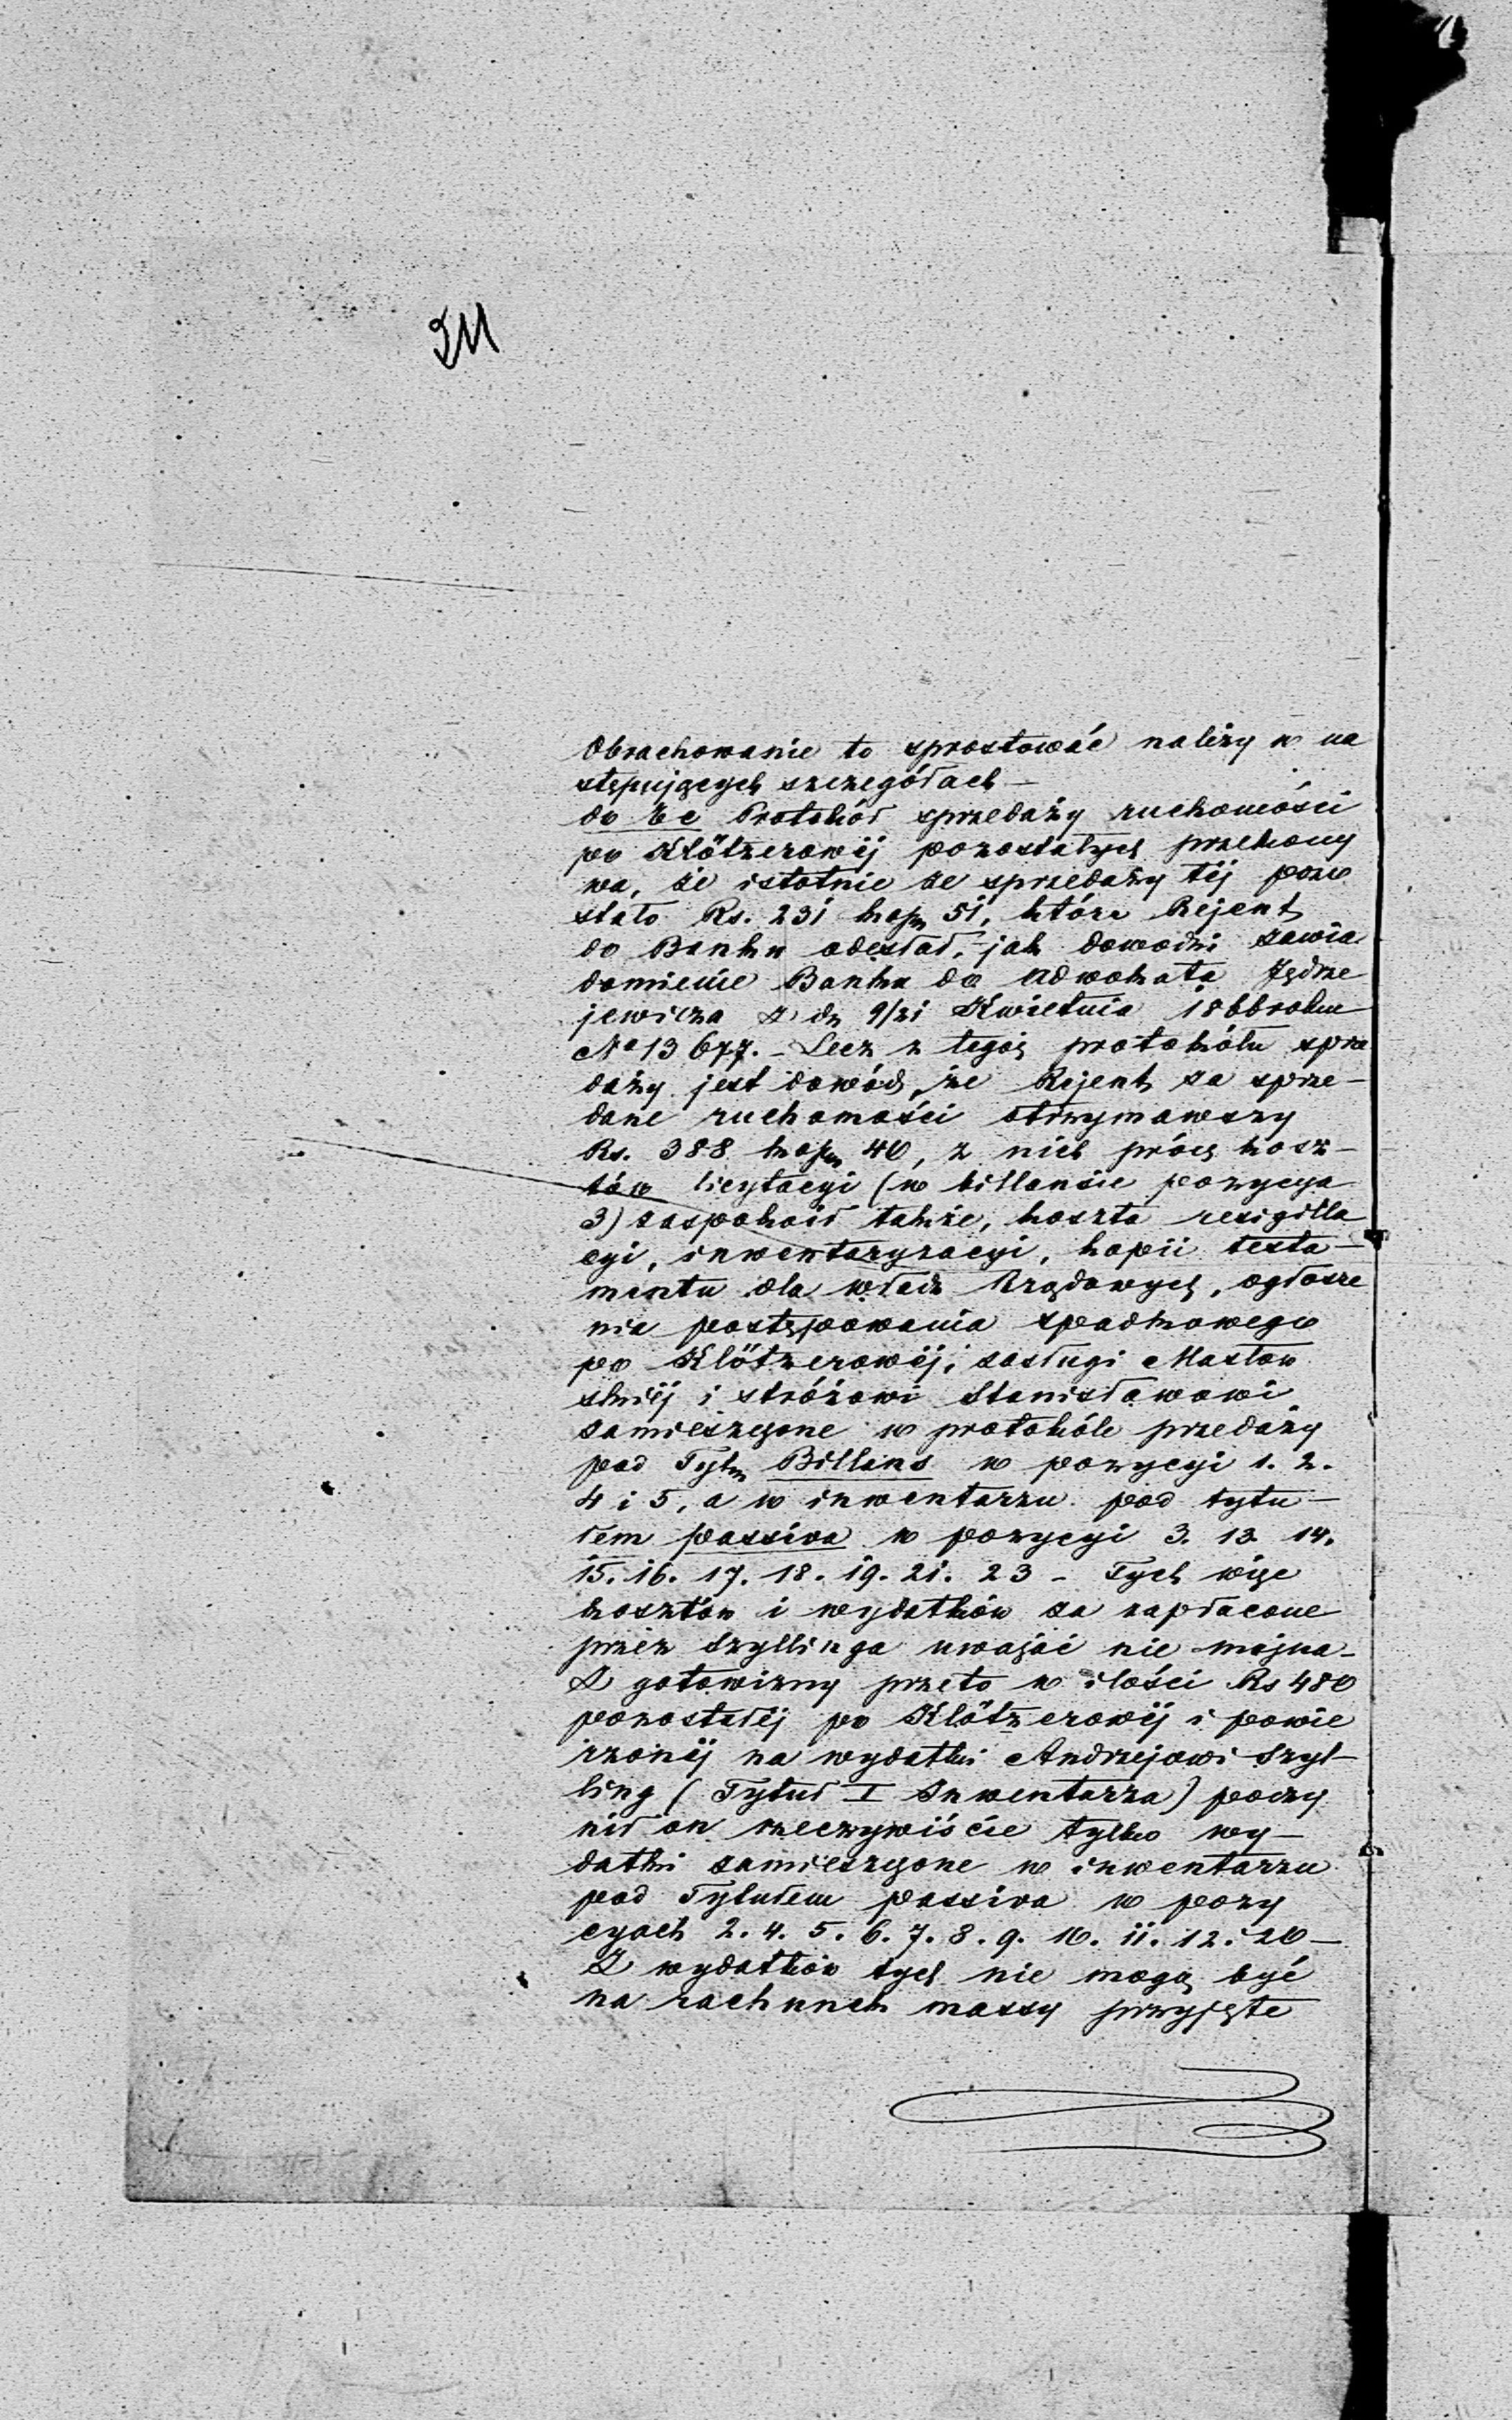 Obrachowanie to sprostować należy w na
stępujących szczegółach —
do Protokół sprzedaży ruchomości
po Klötzerowéj pozostałych przekony
wa, że istotnie ze sprzedaży téj pozo
stało Rs. 231 kop 51, które Rejent
do Banku odesłał, jak dowodzi zawia
domienie Banku do Adwokata Jędrze
jewicza z d. 9/21 Kwietnia 1866 roku
No 13677. – Lecz z tegoż protokółu sprze
daży jest dowód, że Rejent za sprze-
dane ruchomości otrzymawszy
Rs. 388 kop 40, z nich prócz kosz-
tów licytacyi (w billansie pozycya
3) zaspokoił także, koszta resigilla
cyi, inwentaryzacyi, kopii testa-
mentu dla władz Rządowych, ogłosze
nia postępowania spadkowego
po Klötzerowéj, zasługi Masłow
skiéj i stróżowi Stanisławowi
zamieszczone w protokóle przedaży
pod Tyt. Billans w pozycyi 1. 2.
4 i 5, a w inwentarzu pod tytu-
łem passiva w pozycyi 3. 13. 14.
15. 16. 17. 18. 19. 21. 23 – Tych więc
kosztów i wydatków za zapłacone
przez Szyllinga uważać nie można –
Z gotowizny przeto w ilości Rs 480
pozostałéj po Klötzerowéj i powie
rzonéj na wydatki Andrzejowi Szyl-
ling (Tytuł I Inwentarza) poczy
nił on rzeczywiście tylko wy-
datki zamieszczone w inwentarzu
pod Tytułem passiva w pozy
cyach 2. 4. 5. 6. 7. 8. 9. 10. 11. 12. 20 —
Z wydatków tych nie mogą być
na rachunek massy przyjęte